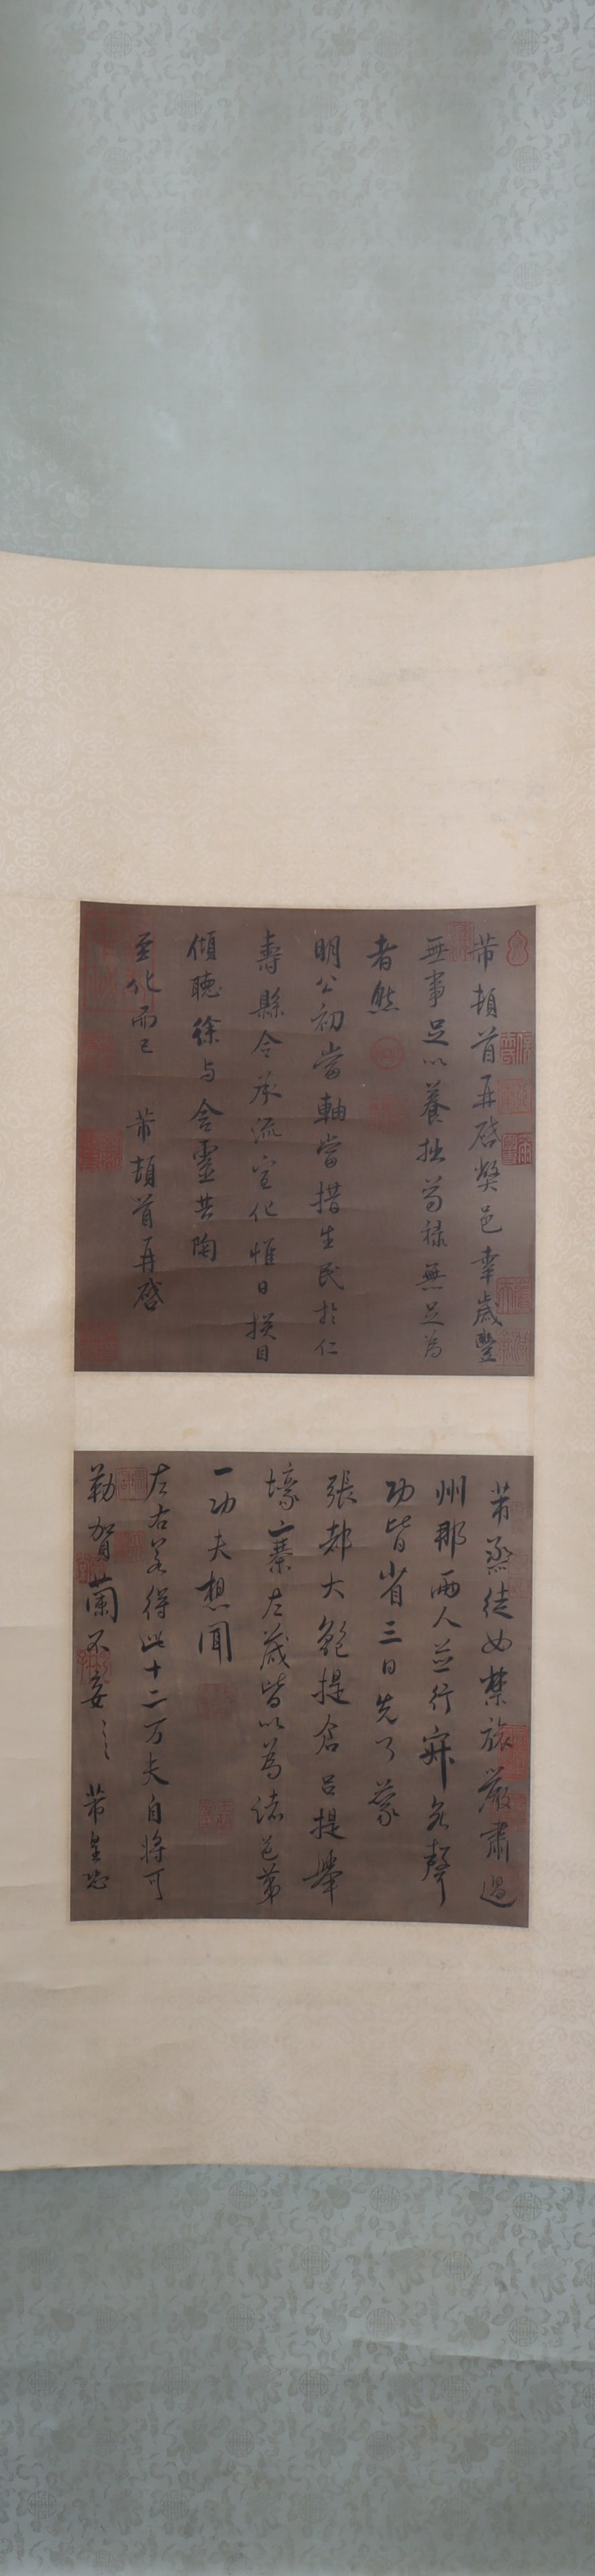 芾頓首再啓弊邑幸歲豐
無事足以養拙苟祿無足為
者然
明公初當軸當措生民於仁
壽縣令承流宣化惟日拭目
傾聽徐與含靈共陶
至化而已 芾頓首再啓
芾烝徒如禁旅嚴肅過
州郡兩人並行寂無聲
功皆省三日先了蒙
張都大鮑提倉呂提舉
壕寨左藏皆以為諸邑第
一功夫想聞
左右若得此十二万夫自將可
勒賀蘭不妄〻 芾皇恐